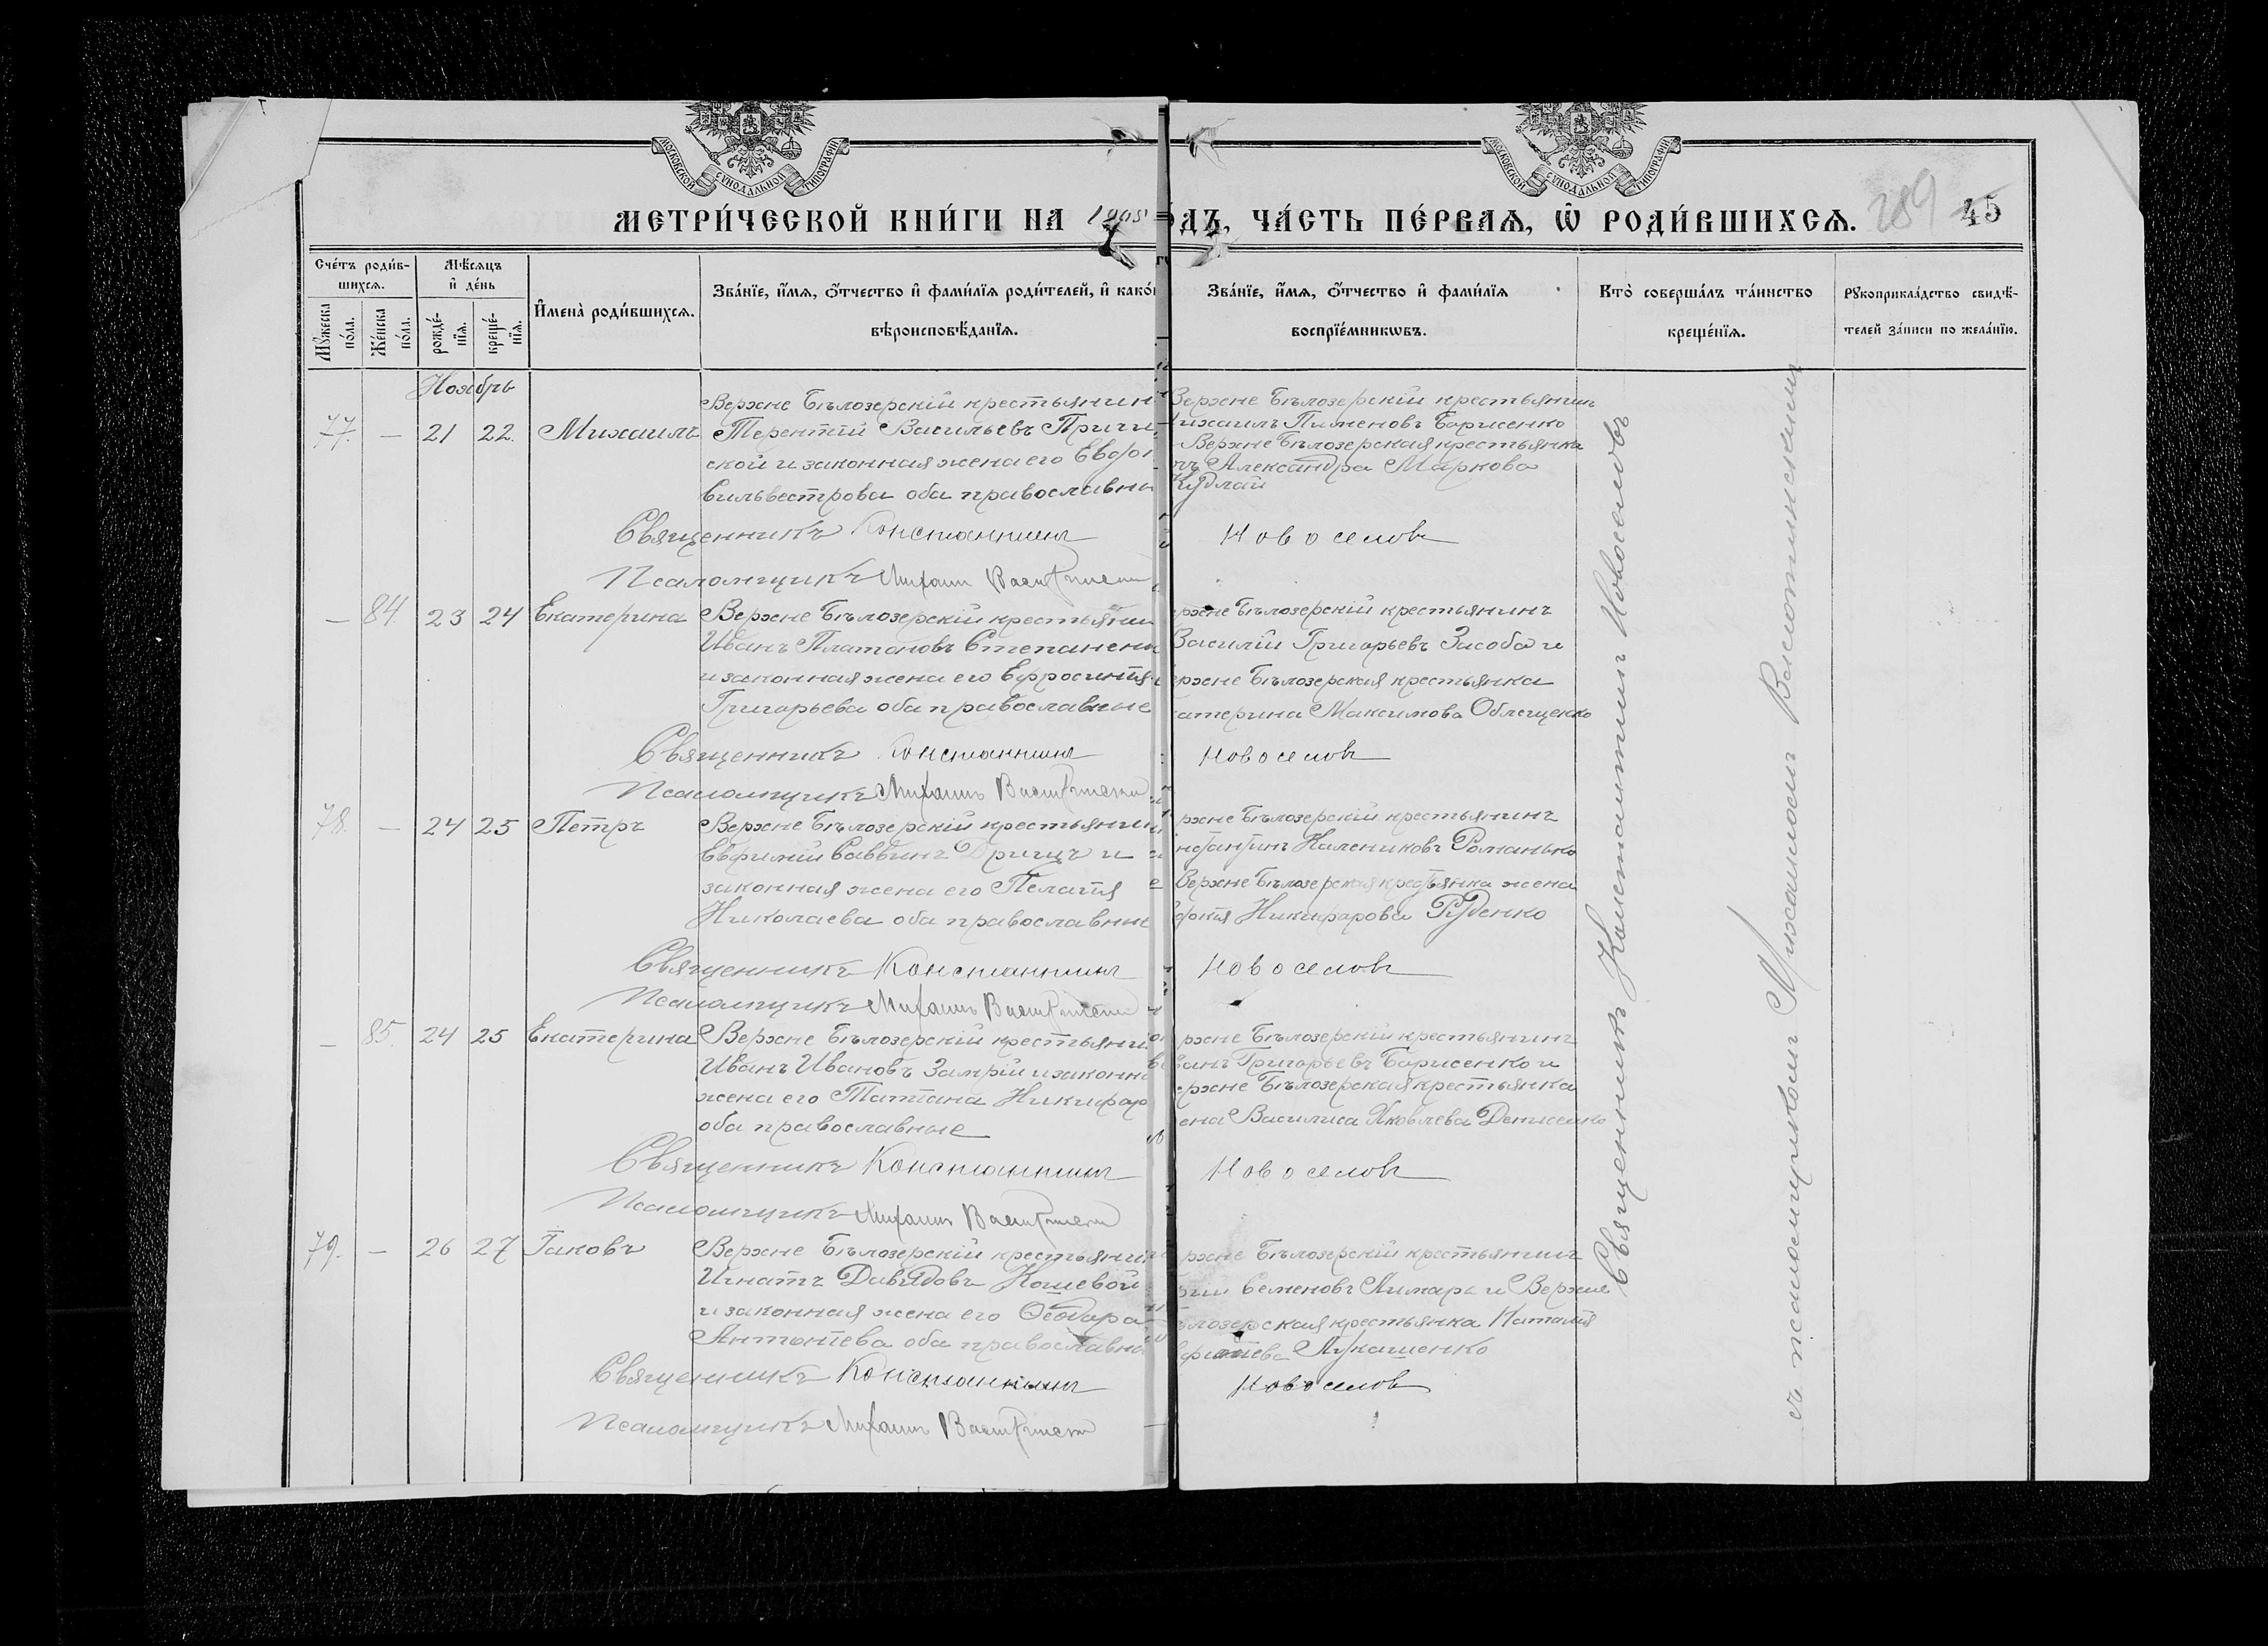 МОСКОВСКОЙ СУНОДАЛЬНОЙ ТИПОГРАФІИ
МОСКОВСКОЙ СУНОДАЛЬНОЙ ТИПОГРАФІИ
МЕТРИ́ЧЕСКОЙ КНИ́ГИ НА 1905
ѺДЪ, ЧА́СТЬ ПЕ́РВАѦ, Ѽ РОДИ́ВШИХСѦ. 289 45
Сче́тъ роди́в-
шихсѧ.
Мꙋ́жеска по́ла.
Же́нска по́ла.
Мѣ́сѧцъ
и҆ де́нь
рожде́-
нїѧ.
креще́-
нїѧ.
И҆мена̀ роди́вшихсѧ.
Зва́нїе, и҆́мѧ, ѻ҆́тчество и҆ фами́лїѧ роди́телей, и҆ како́
вѣроисповѣ́данїѧ.
Зва́нїе, и҆́мѧ, ѻ҆́тчество и҆ фами́лїѧ
воспрїе́мникѡвъ.
Кто̀ соверша́лъ та́инство
креще́нїѧ.
Рꙋкоприкла́дство свидѣ́-
телей за́писи по жела́нїю.
Ноябрь
77. — 21 22. Михаилъ
Верхне Бѣлозерскій крестьянин
Терентій Васильевъ Причи
ской и законная жена его Евфр
Сильвестрова оба православны
Верхне Бѣлозерскій крестьянинъ
ихаилъ Пименовъ Борисенко
Верхне Бѣлозерская крестьянка
Александра Маркова
Кудлай
Священникъ Константинъ Новоселовъ
Псаломщикъ Михаил
— 84. 23 24 Екатерина
Верхне Бѣлозерскій крестьянин
Иванъ Платоновъ Степаненк
и законная жена его Ефросинія
Григорьева оба православные
рхне Бѣлозерскій крестьянинъ
Василій Григорьевъ Засоба и
ерхне Бѣлозерская крестьянка
катерина Максимова Облещенко
Священникъ Константинъ Новоселовъ
Псаломщикъ Михаилъ
78. — 24 25 Петръ
Верхне Бѣлозерскій крестьянин
Евфимій Саввинъ Дрищъ и
законная жена его Пелагія
Николаева оба православные
рхне Бѣлозерскій крестьянинъ
нстантинъ Калениковъ Романько
Верхне Бѣлозерская крестьянка жена
Никифорова Руденко
Священникъ Константинъ Новоселовъ
Псаломщикъ Михаилъ
— 85. 24 25 Екатерина
Верхне Бѣлозерскій крестьяни
Иванъ Ивановъ Замрій и законн
жена его Татіана Никифор
оба православные
рхне Бѣлозерскій крестьянинъ
ванъ Григорьевъ Борисенко и
ерхне Бѣлозерская крестьянка
ена Василиса Яковлева Денисенко
Священникъ Константинъ Новоселовъ
Псаломщикъ Михаилъ
79. — 26 27 Іаковъ
Верхне Бѣлозерскій крестьянин
Игнатъ Давидовъ Кошевой
и законная жена его Ѳеодора
Антоніева оба православны
рхне Бѣлозерскій крестьянинъ
Семеновъ Лимарь и Верхне
лозерская крестьянка Наталія
Лукашенко
Священникъ Константинъ Новоселовъ
Псаломщикъ Михаилъ
Священникъ Константинъ Новоселовъ
съ псаломщикомъ Михаиломъ